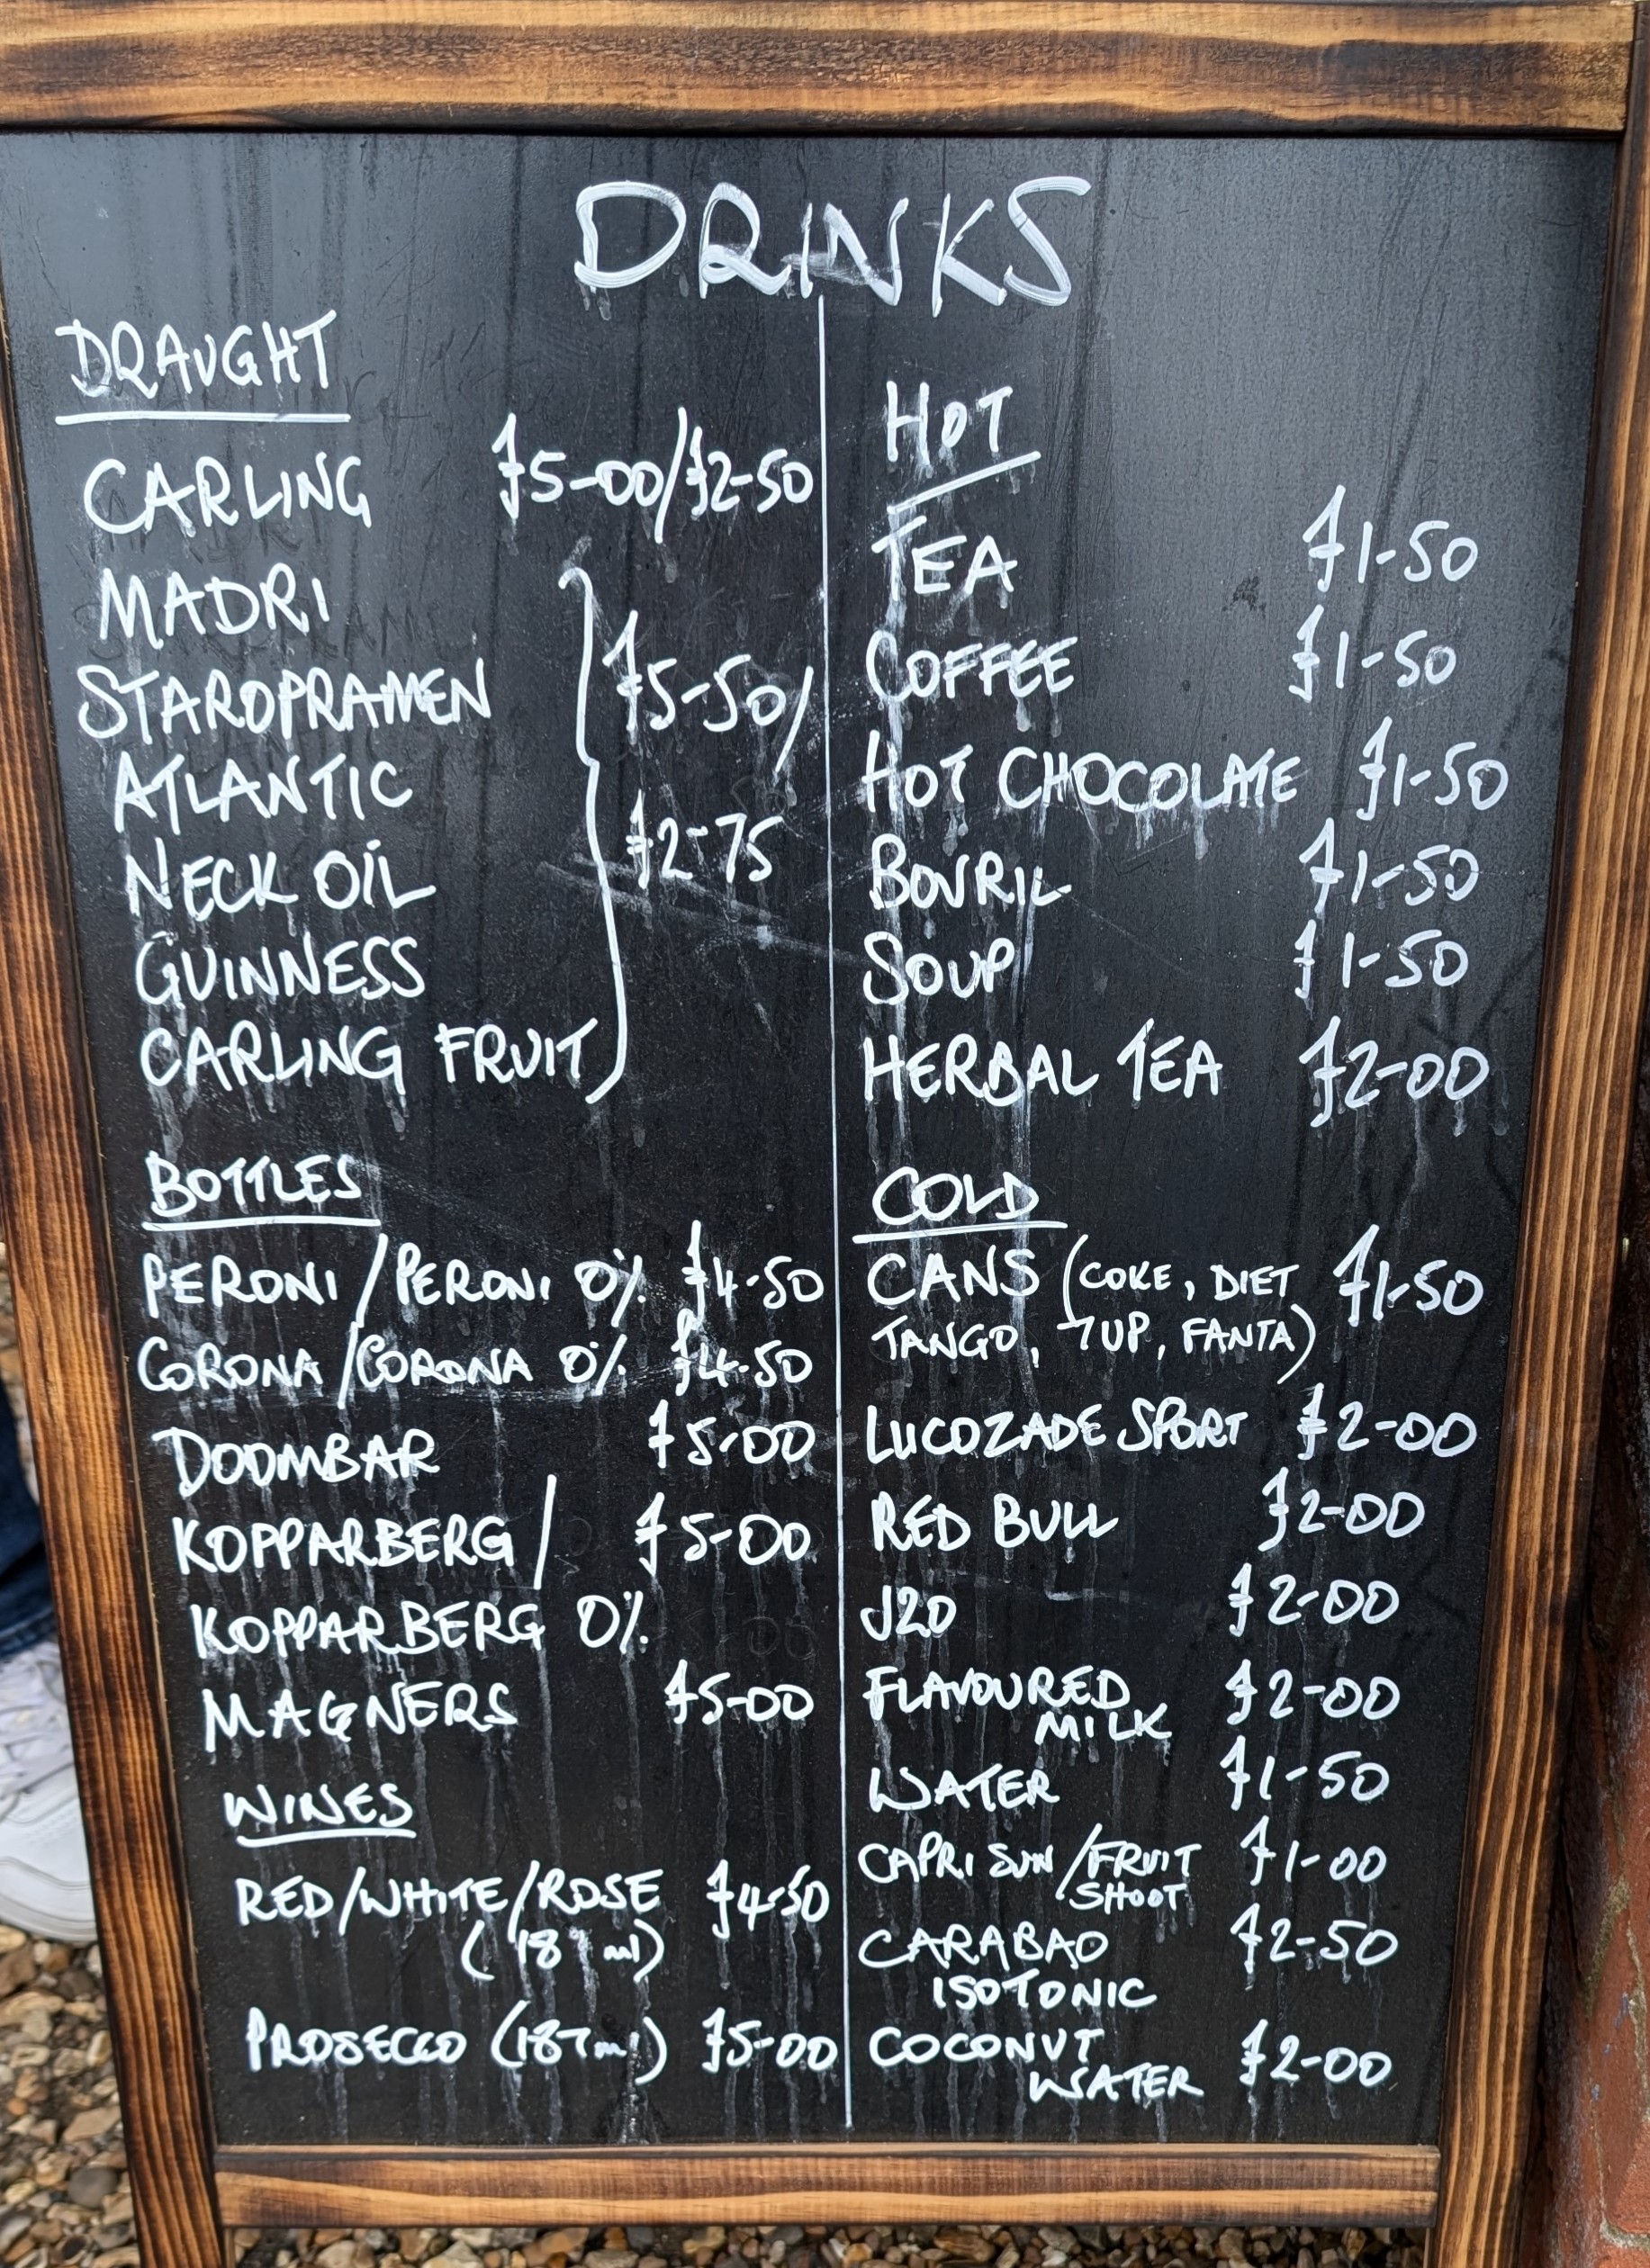 DRINKS
DRAUGHT
CARLING £5-00/£2-50
MADRI
STAROPRAMEN £5-50/
ATLANTIC
NECK OIL £2-75
GUINNESS
CARLING FRUIT
BOTTLES
PERONI/PERONI 0% £4-50
CORONA/CORONA 0% £4-50
DOOMBAR £5-00
KOPPARBERG/ £5-00
KOPPARBERG 0%
MAGNERS £5-00
WINES
RED/WHITE/ROSE £4-50
PROSECCO (187ml) £5-00
HOT
TEA £1-50
COFFEE £1-50
HOT CHOCOLATE £1-50
BOVRIL £1-50
SOUP £1-50
HERBAL TEA £2-00
COLD
CANS (COKE, DIET £1-50
TANGO, 7UP, FANTA)
LUCOZADE SPORT £2-00
RED BULL £2-00
J20 £2-00
FLAVOURED £2-00
MILK
WATER £1-50
CAPRI SUN/FRUIT £1-00
SHOOT
CARABAO £2-50
ISOTONIC
COCONUT £2-00
WATER